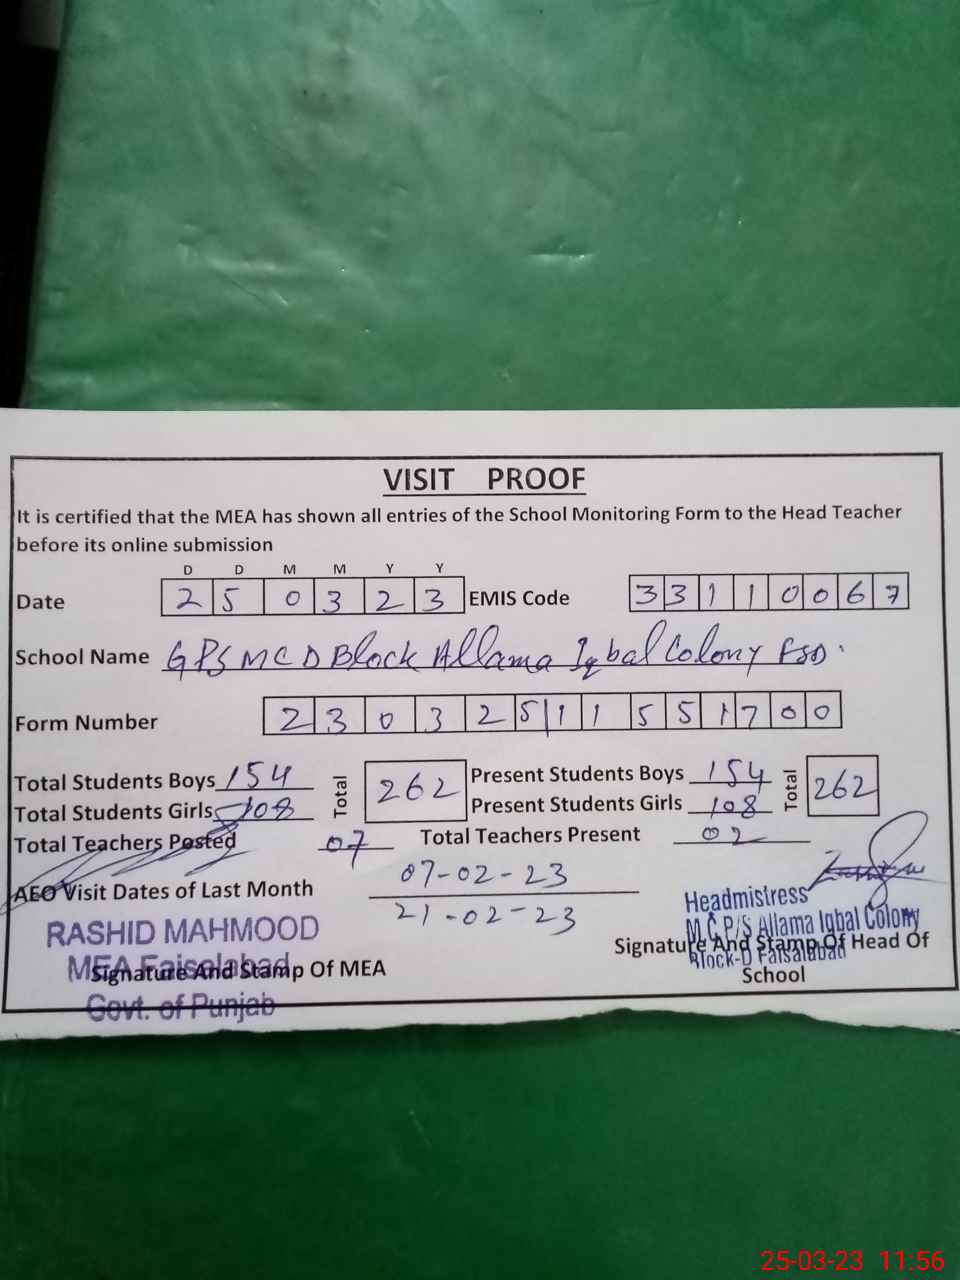 VISIT PROOF
It is certified that the MEA has shown all entries of the School Monitoring Form to the Head Teacher
before its online submission
D D M M Y Y
Date 2 5 0 3 2 3 EMIS Code 3 3 1 1 0 0 6 7
School Name GPS MC D Block Allama Iqbal Colony FSD.
Form Number 2 3 0 3 2 5 1 1 5 5 1 7 0 0
Total Students Boys 154 Total 262 Present Students Boys 154 Total 262
Total Students Girls 108 Present Students Girls 108
Total Teachers Posted 07 Total Teachers Present 02
AEO Visit Dates of Last Month 07-02-23
21-02-23
RASHID MAHMOOD
MEA Faisalabad
Govt. of Punjab
Signature And Stamp Of MEA
Headmistress
M.C.P/S Allama Iqbal Colony
Block-D Faisalabad
Signature And Stamp Of Head Of
School
25-03-23 11:56